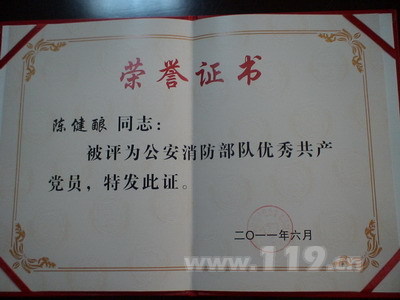 荣誉证书
陈健酿 同志：
被评为公安消防部队优秀共产
党员，特发此证。
二〇一一年六月
www.119.cn